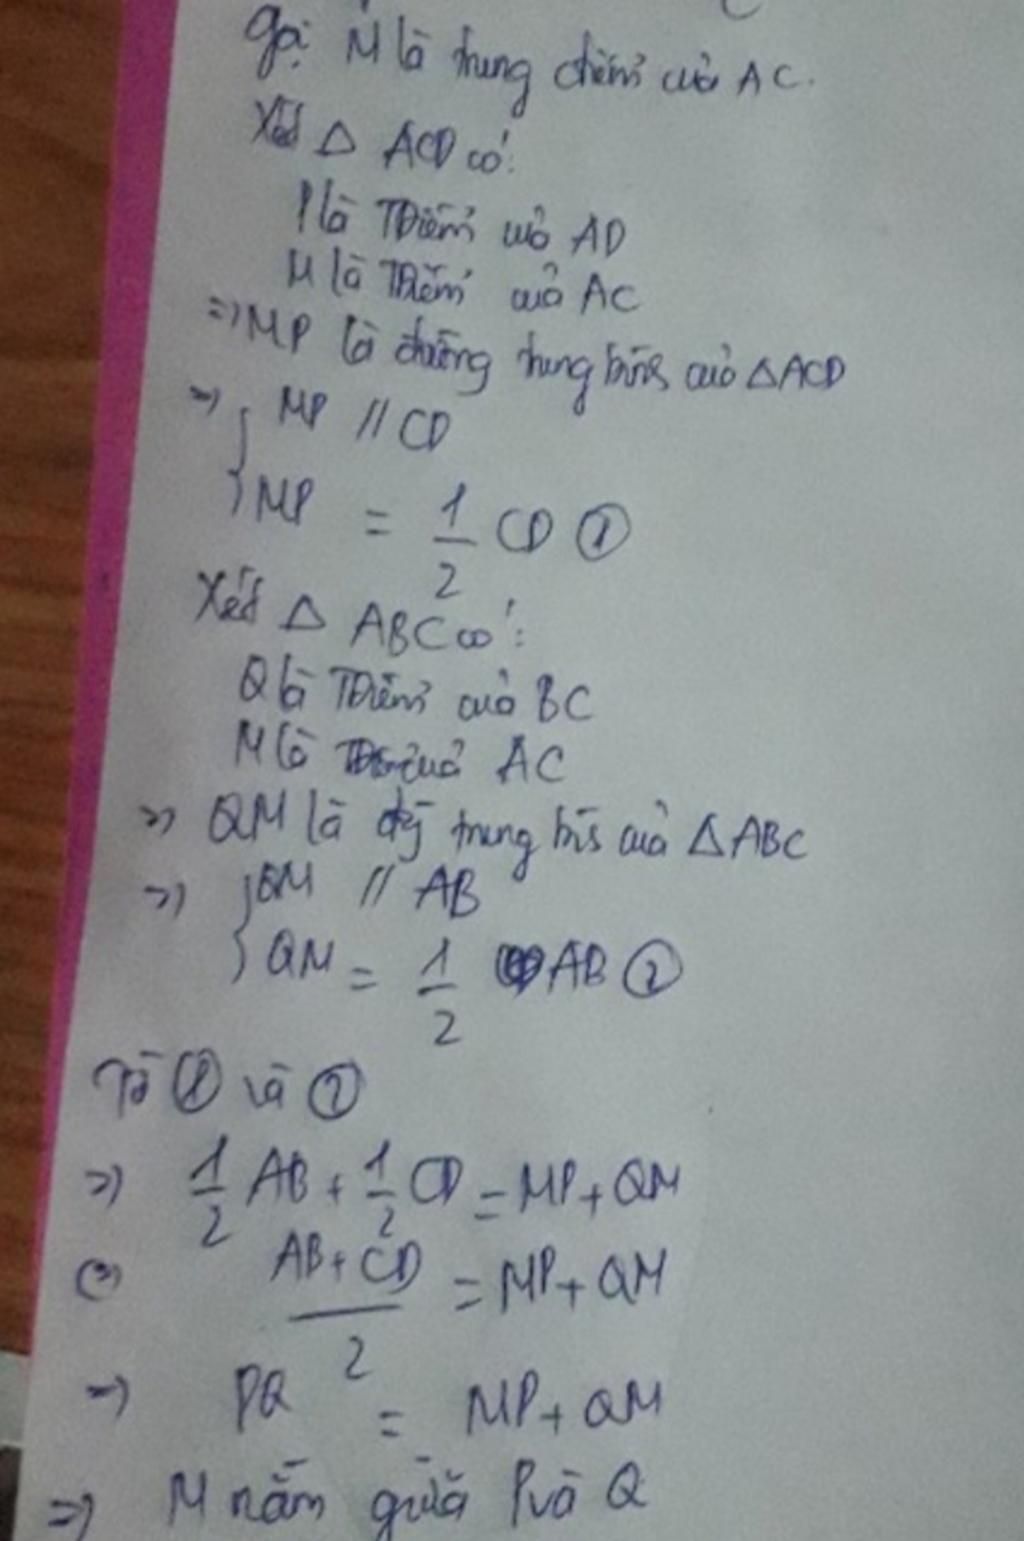 Gọi M là trung điểm của AC.
Xét Δ ACD có:
P là TĐiểm của AD
M là TĐiểm của AC
=> MP là đường trung bình của ΔACD
=> { MP // CD
MP = 1/2 CD ①
Xét Δ ABC có:
Q là TĐiểm của BC
M là của AC
=> QM là trung bình của ΔABC
=> { QM // AB
QM = 1/2 AB ②
Từ ① và ②
=> 1/2 AB + 1/2 CD = MP + QM
(=) (AB + CD)/2 = MP + QM
=> PQ = MP + QM
=> M nằm giữa P và Q